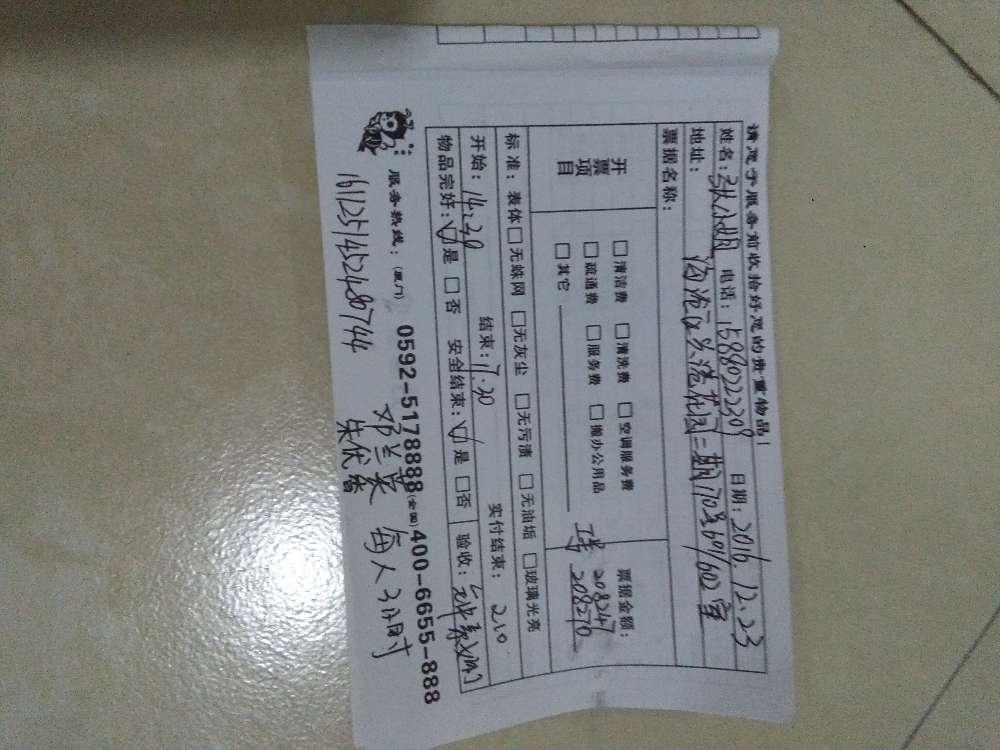 请您于服务前收拾好您的贵重物品！
姓名：张小明 电话：15880222309 日期：2016.12.23
地址：海沧区头港花园二期170号601/602室
票据名称：
开票项目
□清洁费 □清洗费 □空调服务费
□疏通费 □服务费 □搬办公用品
□其它
票据金额：
208247
208270
标准：表体□无蛛网 □无灰尘 □无污渍 □无油垢 □玻璃光亮
开始：14:30 结束：17.30 实付结束：210
物品完好：☑是 □否 安全结束：☑是 □否 验收：
服务热线：(厦门) 0592-5178888 (全国) 400-6655-888
1611251452480744 邓兰英 每人3小时
朱优香